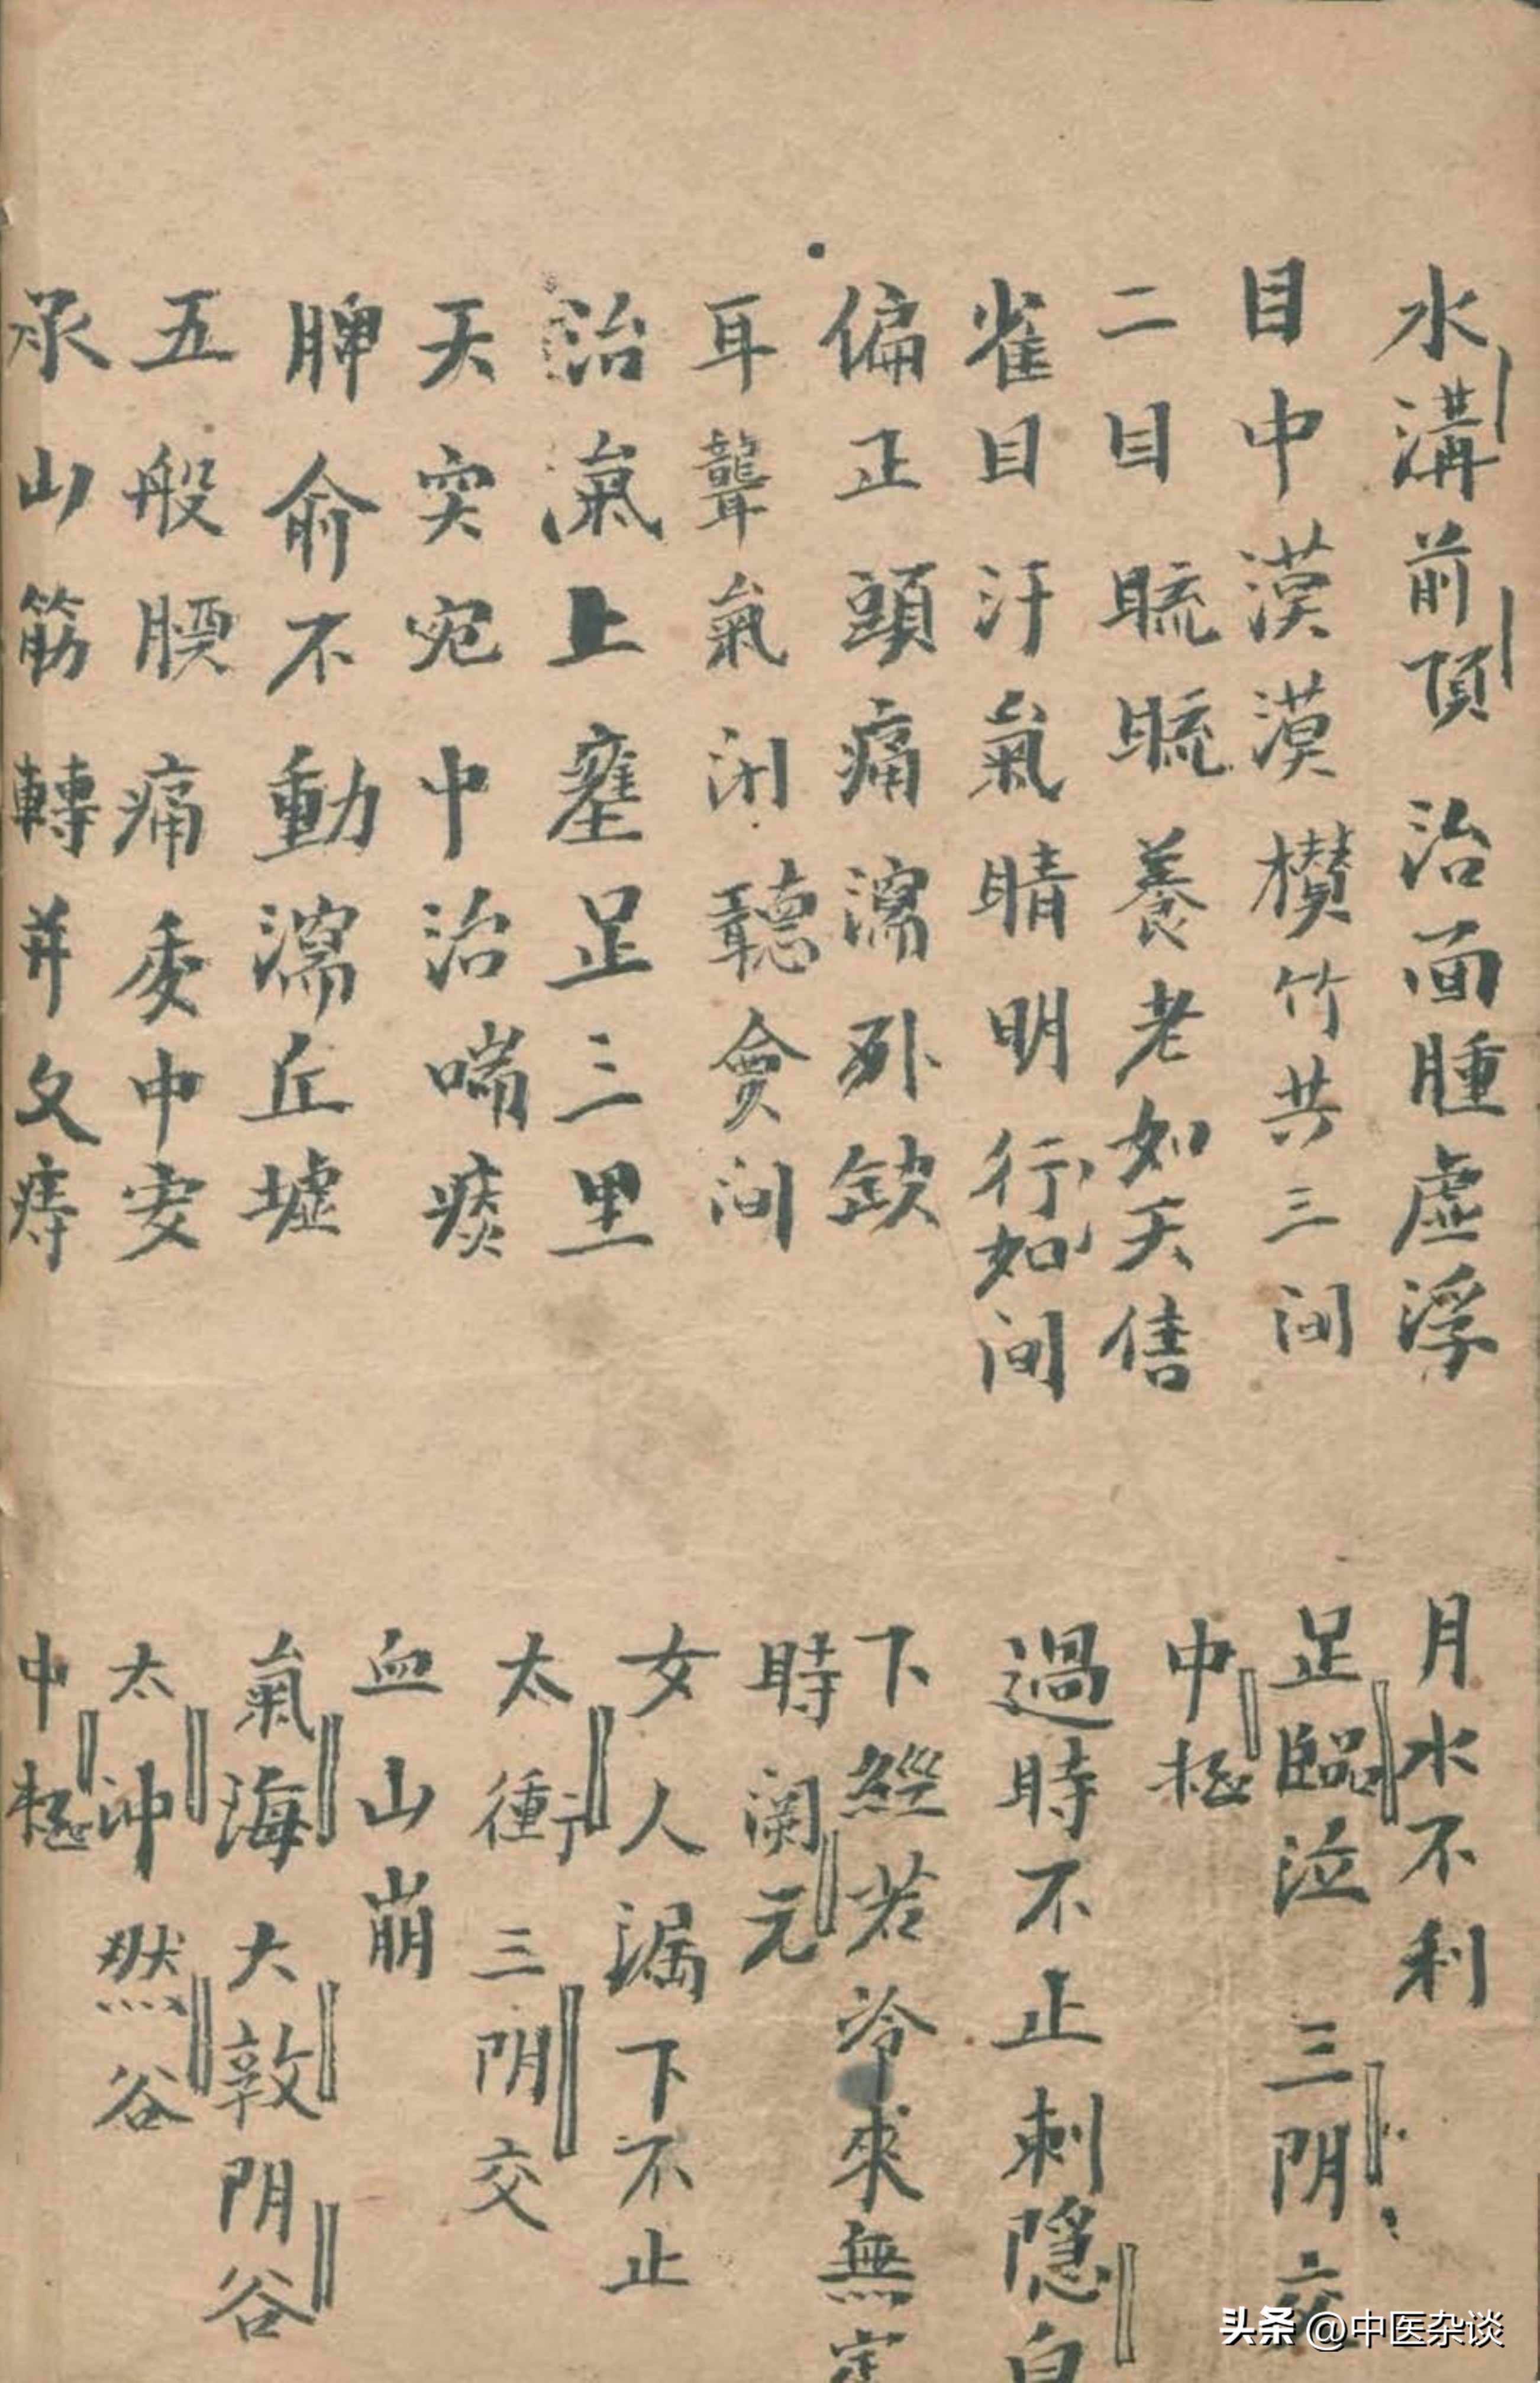 水溝前頂 治面腫虛浮
目中漠漠 攢竹共三间
二目䀮䀮 養老如天
雀目汗氣 睛明行如间
偏正頭痛 瀉列缺
耳聾氣闭 聽會间
治瀉氣上壅足三里
天突宛中治喘痰
脾俞不動瀉丘墟
五般腰痛委中安
承山筋轉并久痔
月水不利
足臨泣 三阴交
中極
過時不止刺隱白
下經若冷來無定
時関元
女人漏下不止
太衝 三阴交
血山崩
氣海 大敦 阴谷
太冲 然谷
中極
头条 @中医杂谈